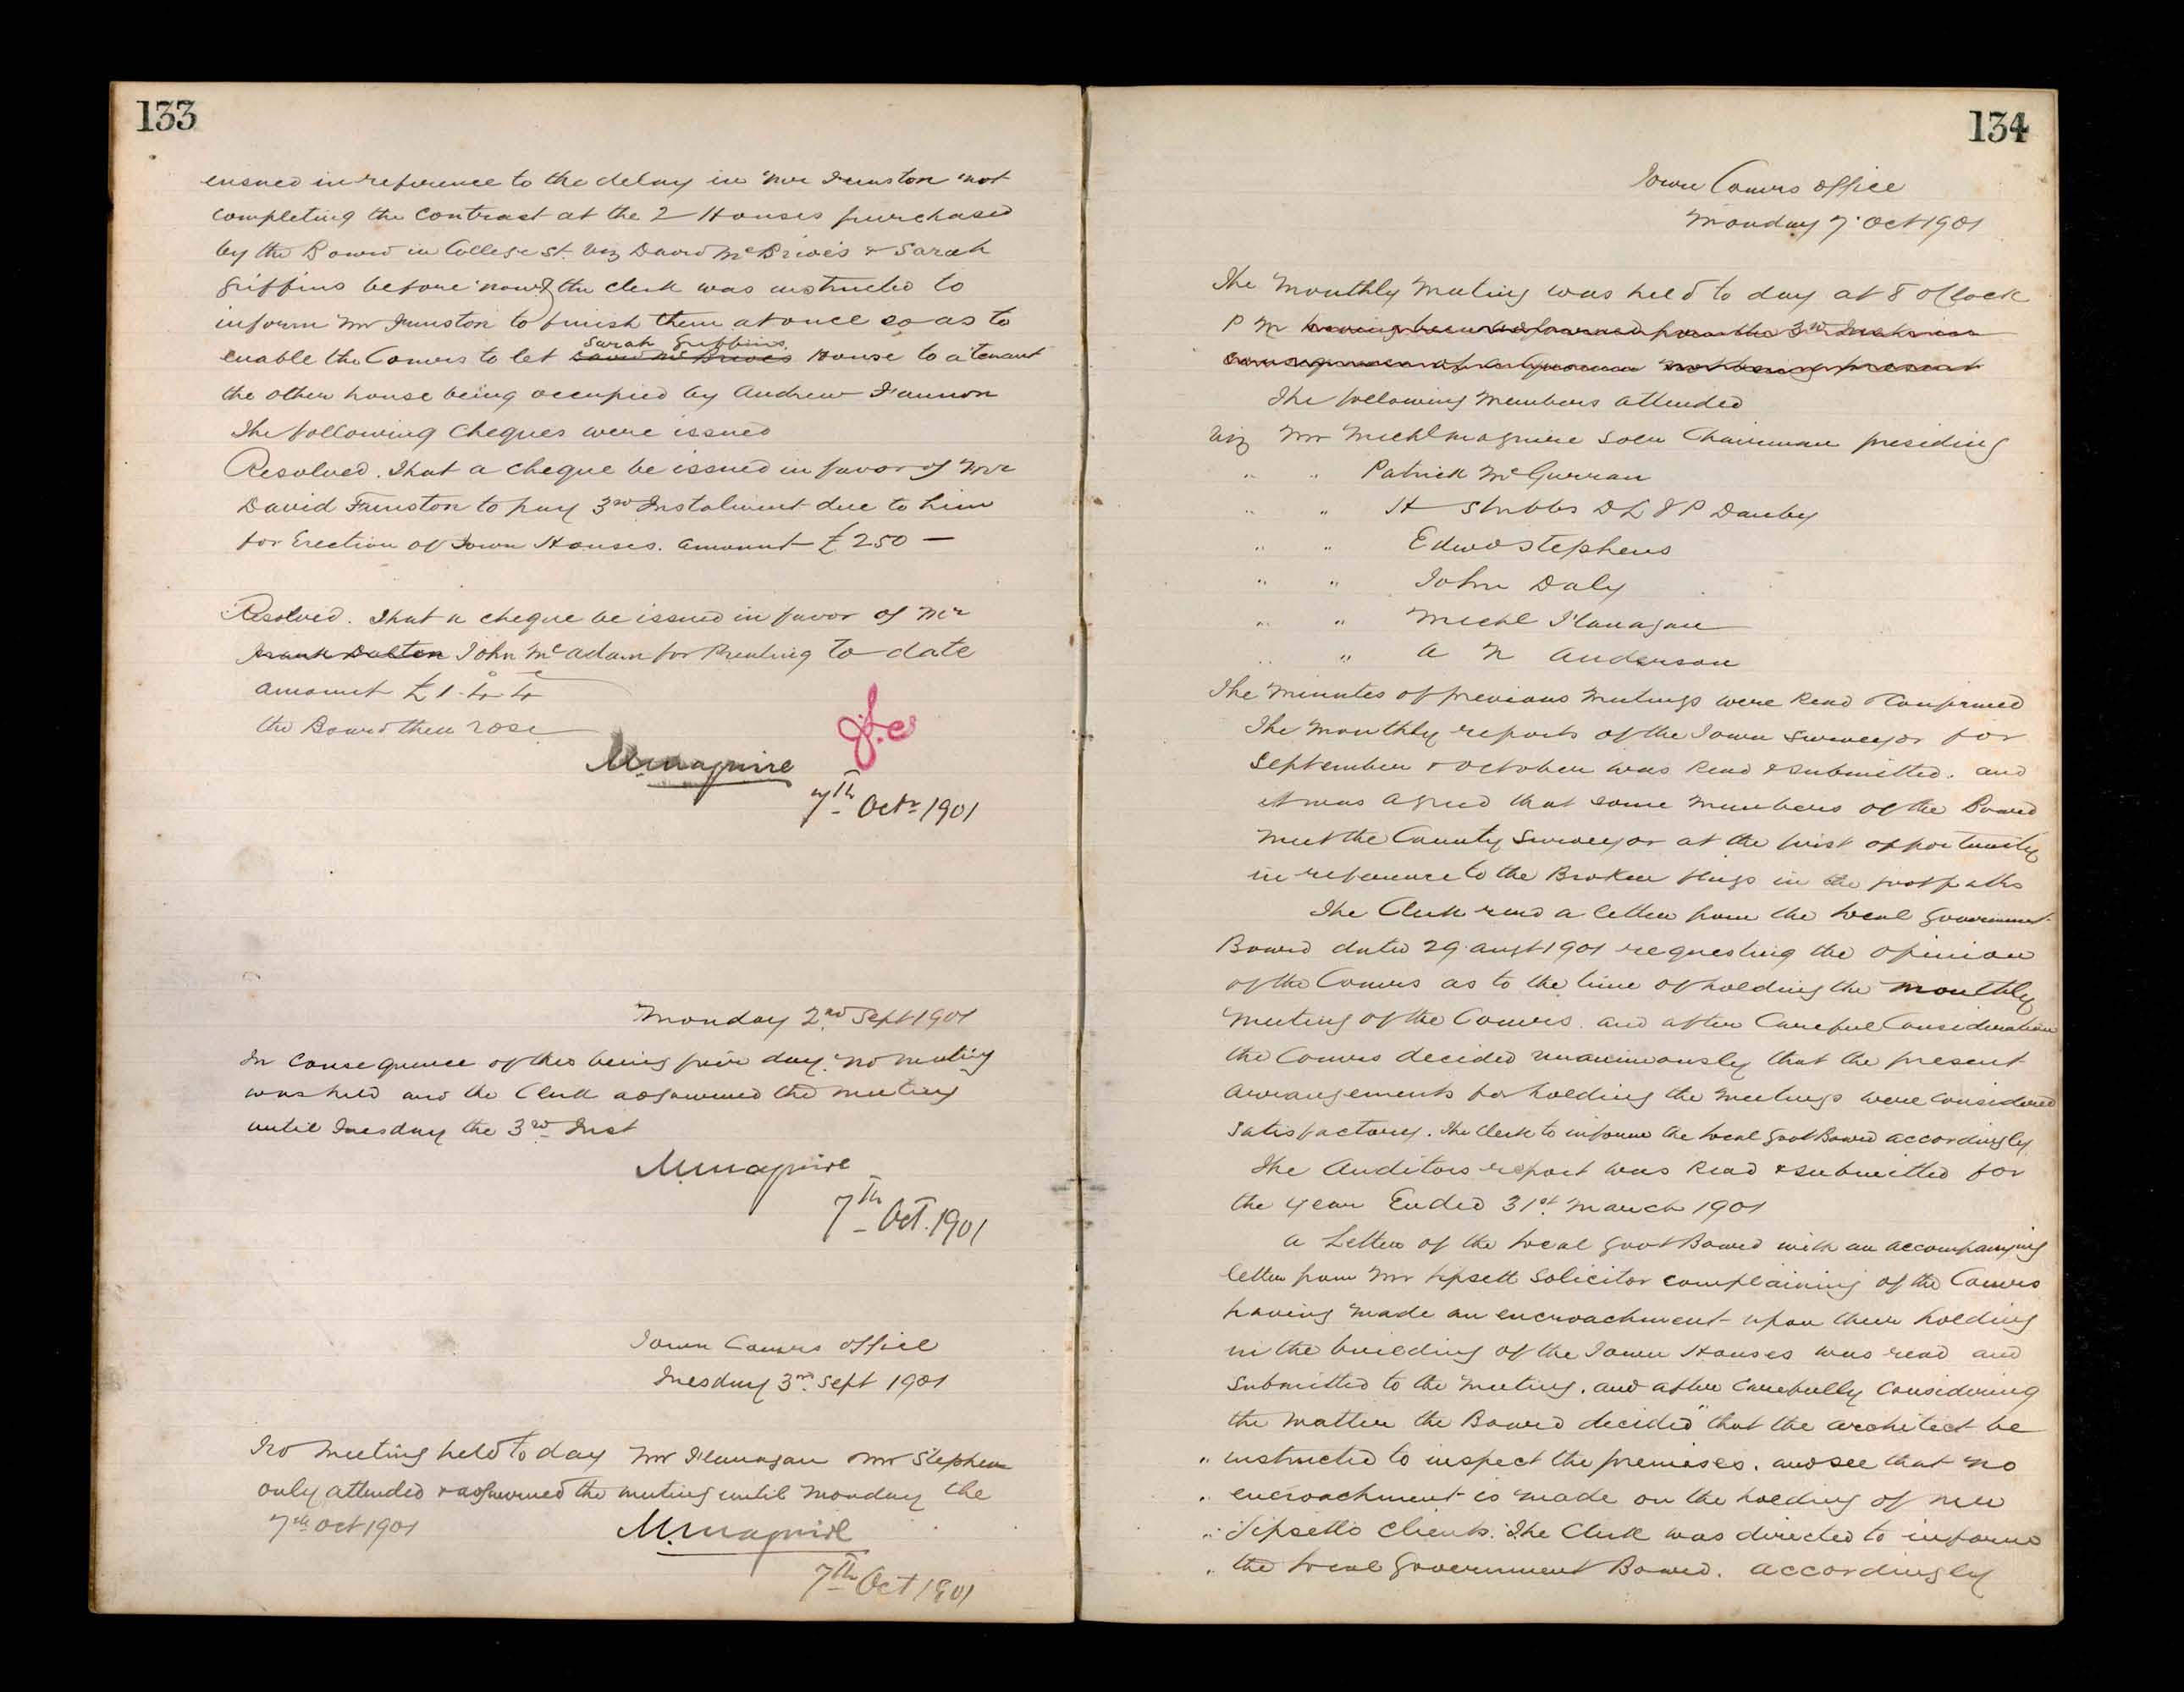 133
ensued in reference to the delay in Mr Funston not
completing the contract at the 2 Houses purchased
by the Board in College St. viz David McBrides & Sarah
Griffins before now & the Clerk was instructed to
inform Mr Funston to finish them at once so as to
Sarah Griffins
enable the Comrs to let David McBrides House to a tenant
the other house being occupied by Andrew Fannon
The following Cheques were issued
Resolved. That a cheque be issued in favor of Mr
David Funston to pay 3rd Instalment due to him
for Erection of Town Houses. amount £250 —
Resolved. That a cheque be issued in favor of Mr
Frank Dalton John McAdam for Printing to date
amount £1-4-4
the Board then rose
MMaguire
7th Octr 1901
Monday 2nd Sept 1901
In consequence of this being fair day. no meeting
was held and the Clerk adjourned the meeting
until Tuesday the 3rd Inst
MMaguire
7th Oct. 1901
Town Comrs office
Tuesday 3rd Sept 1901
No meeting held to day Mr Flanagan & Mr Stephens
only attended & adjourned the meeting until Monday the
7th Oct 1901
MMaguire
7th Oct 1901
134
Town Comrs office
Monday 7 Oct 1901
The Monthly Meeting was held to day at 8 oClock
P M having been adjourned from the 3rd Inst in
consequence of a Quorum not being present
The following Members attended
viz Mr Michl Maguire Solr Chairman presiding
" " Patrick McGurran
" " H Stubbs DL JP Danby
" " Edwd Stephens
" " John Daly
" " Michl Flanagan
" " A N Anderson
The Minutes of previous Meetings were Read & Confirmed
The Monthly reports of the Town Surveyor for
September & October was Read & submitted. and
it was agreed that some Members of the Board
meet the County Surveyor at the first opportunity
in reference to the Broken flags in the footpaths
The Clerk read a letter from the Local Government
Board dated 29 Augt 1901 requesting the opinion
of the Comrs as to the time of holding the monthly
Meeting of the Comrs. and after Careful Consideration
the Comrs decided unanimously that the present
arrangements for holding the Meetings were Considered
satisfactory. The Clerk to inform the Local Govt Board accordingly
The Auditors report was Read & submitted for
the year Ended 31st March 1901
A Letter of the Local Govt Board with an accompanying
letter from Mr Lipsett Solicitor complaining of the Comrs
having made an encroachment upon their holding
in the building of the Town Houses was read and
submitted to the Meeting. and after carefully Considering
the Matter the Board decided "that the architect be
" instructed to inspect the premises. and see that no
" encroachment is made on the holding of Mr
" Lipsetts Clients. The Clerk was directed to inform
" the Local Government Board. accordingly